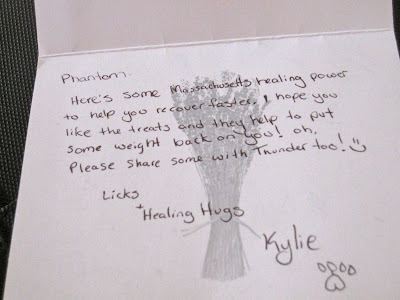 Phantom.
Here's some Massachusetts healing power
to help you recover faster. I hope you
like the treats and they help to put
some weight back on you! oh,
Please share some with Thunder too!
Licks
+
Healing Hugs
Kylie